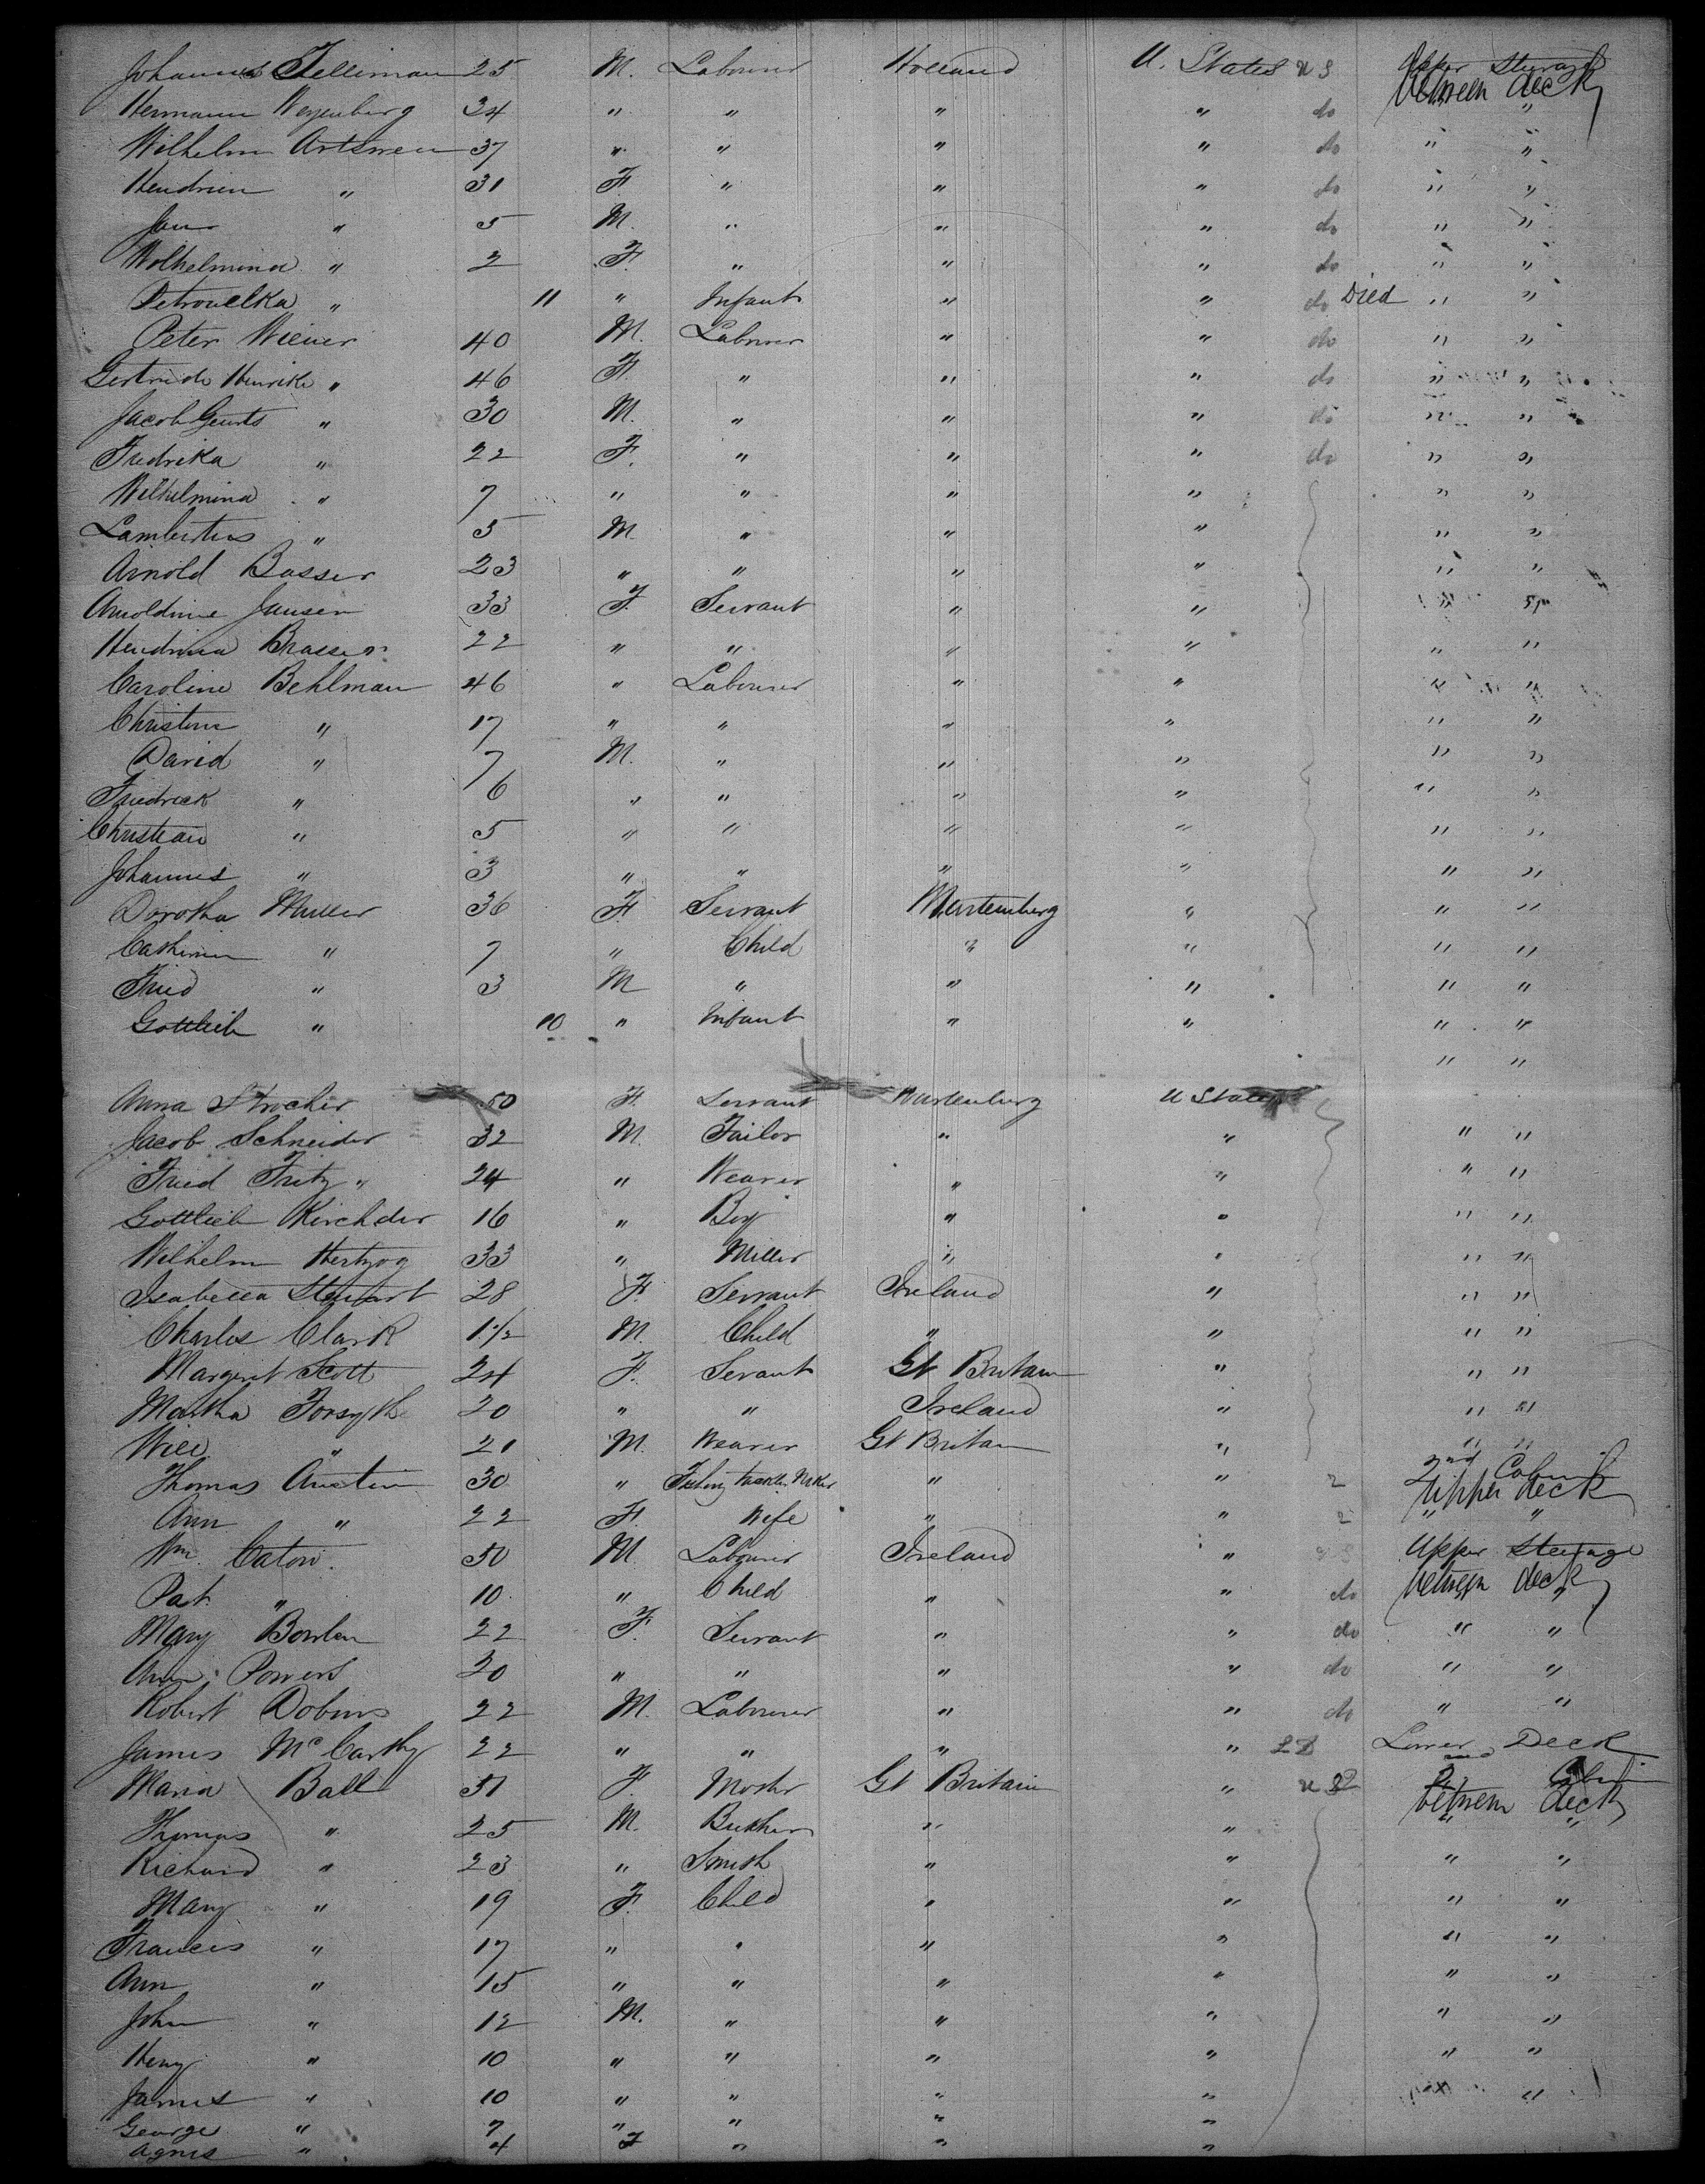 Johannes Telliman 25 M. Labourer Holland U. States U S Upper Steerage between deck
Hermann Weyenburg 34 " " " " do " "
Wilhelm Artsmen 37 " " " " do " "
Hendrien " 31 F. " " " do " "
Jan " 5 M. " " " do " "
Wilhelmina " 2 F. " " " do " "
Petronelka " 11 " Infant " " do Died " "
Peter Wiener 40 M. Labourer " " do " "
Gertrude Henrike " 46 F. " " " do " "
Jacob Geurts " 30 M. " " " do " "
Fredrika " 22 F. " " " do " "
Wilhelmina " 7 " " " " " "
Lambertus " 5 M. " " " " "
Arnold Basser 23 " " " " " "
Arnoldine Jansen 33 F. Servant " " " "
Hendrina Brasser 22 " " " " " "
Caroline Behlman 46 " Labourer " " " "
Christine " 17 " " " " " "
David " 7 M. " " " " "
Friedrick " 6 " " " " " "
Christian " 5 " " " " " "
Johannes " 3 " " " " " "
Dorotha Muller 36 F. Servant Wurtemburg " " "
Catherine " 7 " Child " " " "
Fried " 3 M " " " " "
Gottlieb " 10 " Infant " " " "
" "
Anna Strocher 50 F. Servant Wurtemburg U States
Jacob Schneider 32 M. Tailor " " " "
Fried Fritz " 24 " Weaver " " " "
Gottlieb Kirchder 16 " Boy " " " "
Wilhelm Hertzog 33 " Miller " " " "
Isabella Stewart 28 F. Servant Ireland " " "
Charles Clark 1 1/2 M. Child " " " "
Margerit Scott 24 F. Servant Gt Britain " " "
Martha Forsyth 20 " " Ireland " " "
Will " 21 M. Weaver Gt Britain " " "
Thomas Austin 30 " Fishing tackle Mker " " 2 2nd Cabin Upper deck
Ann " 22 F. Wife " " 2 " "
Wm. Caton 50 M. Labourer Ireland " U S Upper Steerage
Pat " 10 " Child " " do between deck
Mary Bowlen 22 F. Servant " " do " "
Ann Powers 20 " " " " do " "
Robert Dobins 22 M. Labourer " " do " "
James McCarthy 22 " " " " L D Lower Deck
Maria Ball 51 F. Mother Gt Britain " 2nd Cabin between deck
Thomas " 25 M. Butcher " " " "
Richard " 23 " Smith " " " "
Mary " 19 F. Child " " " "
Frances " 17 " " " " " "
Ann " 15 " " " " " "
John " 12 M. " " " " "
Henry " 10 " " " " " "
James " 10 " " " " "
George " 7 " " " "
Agnes " 4 F " " "